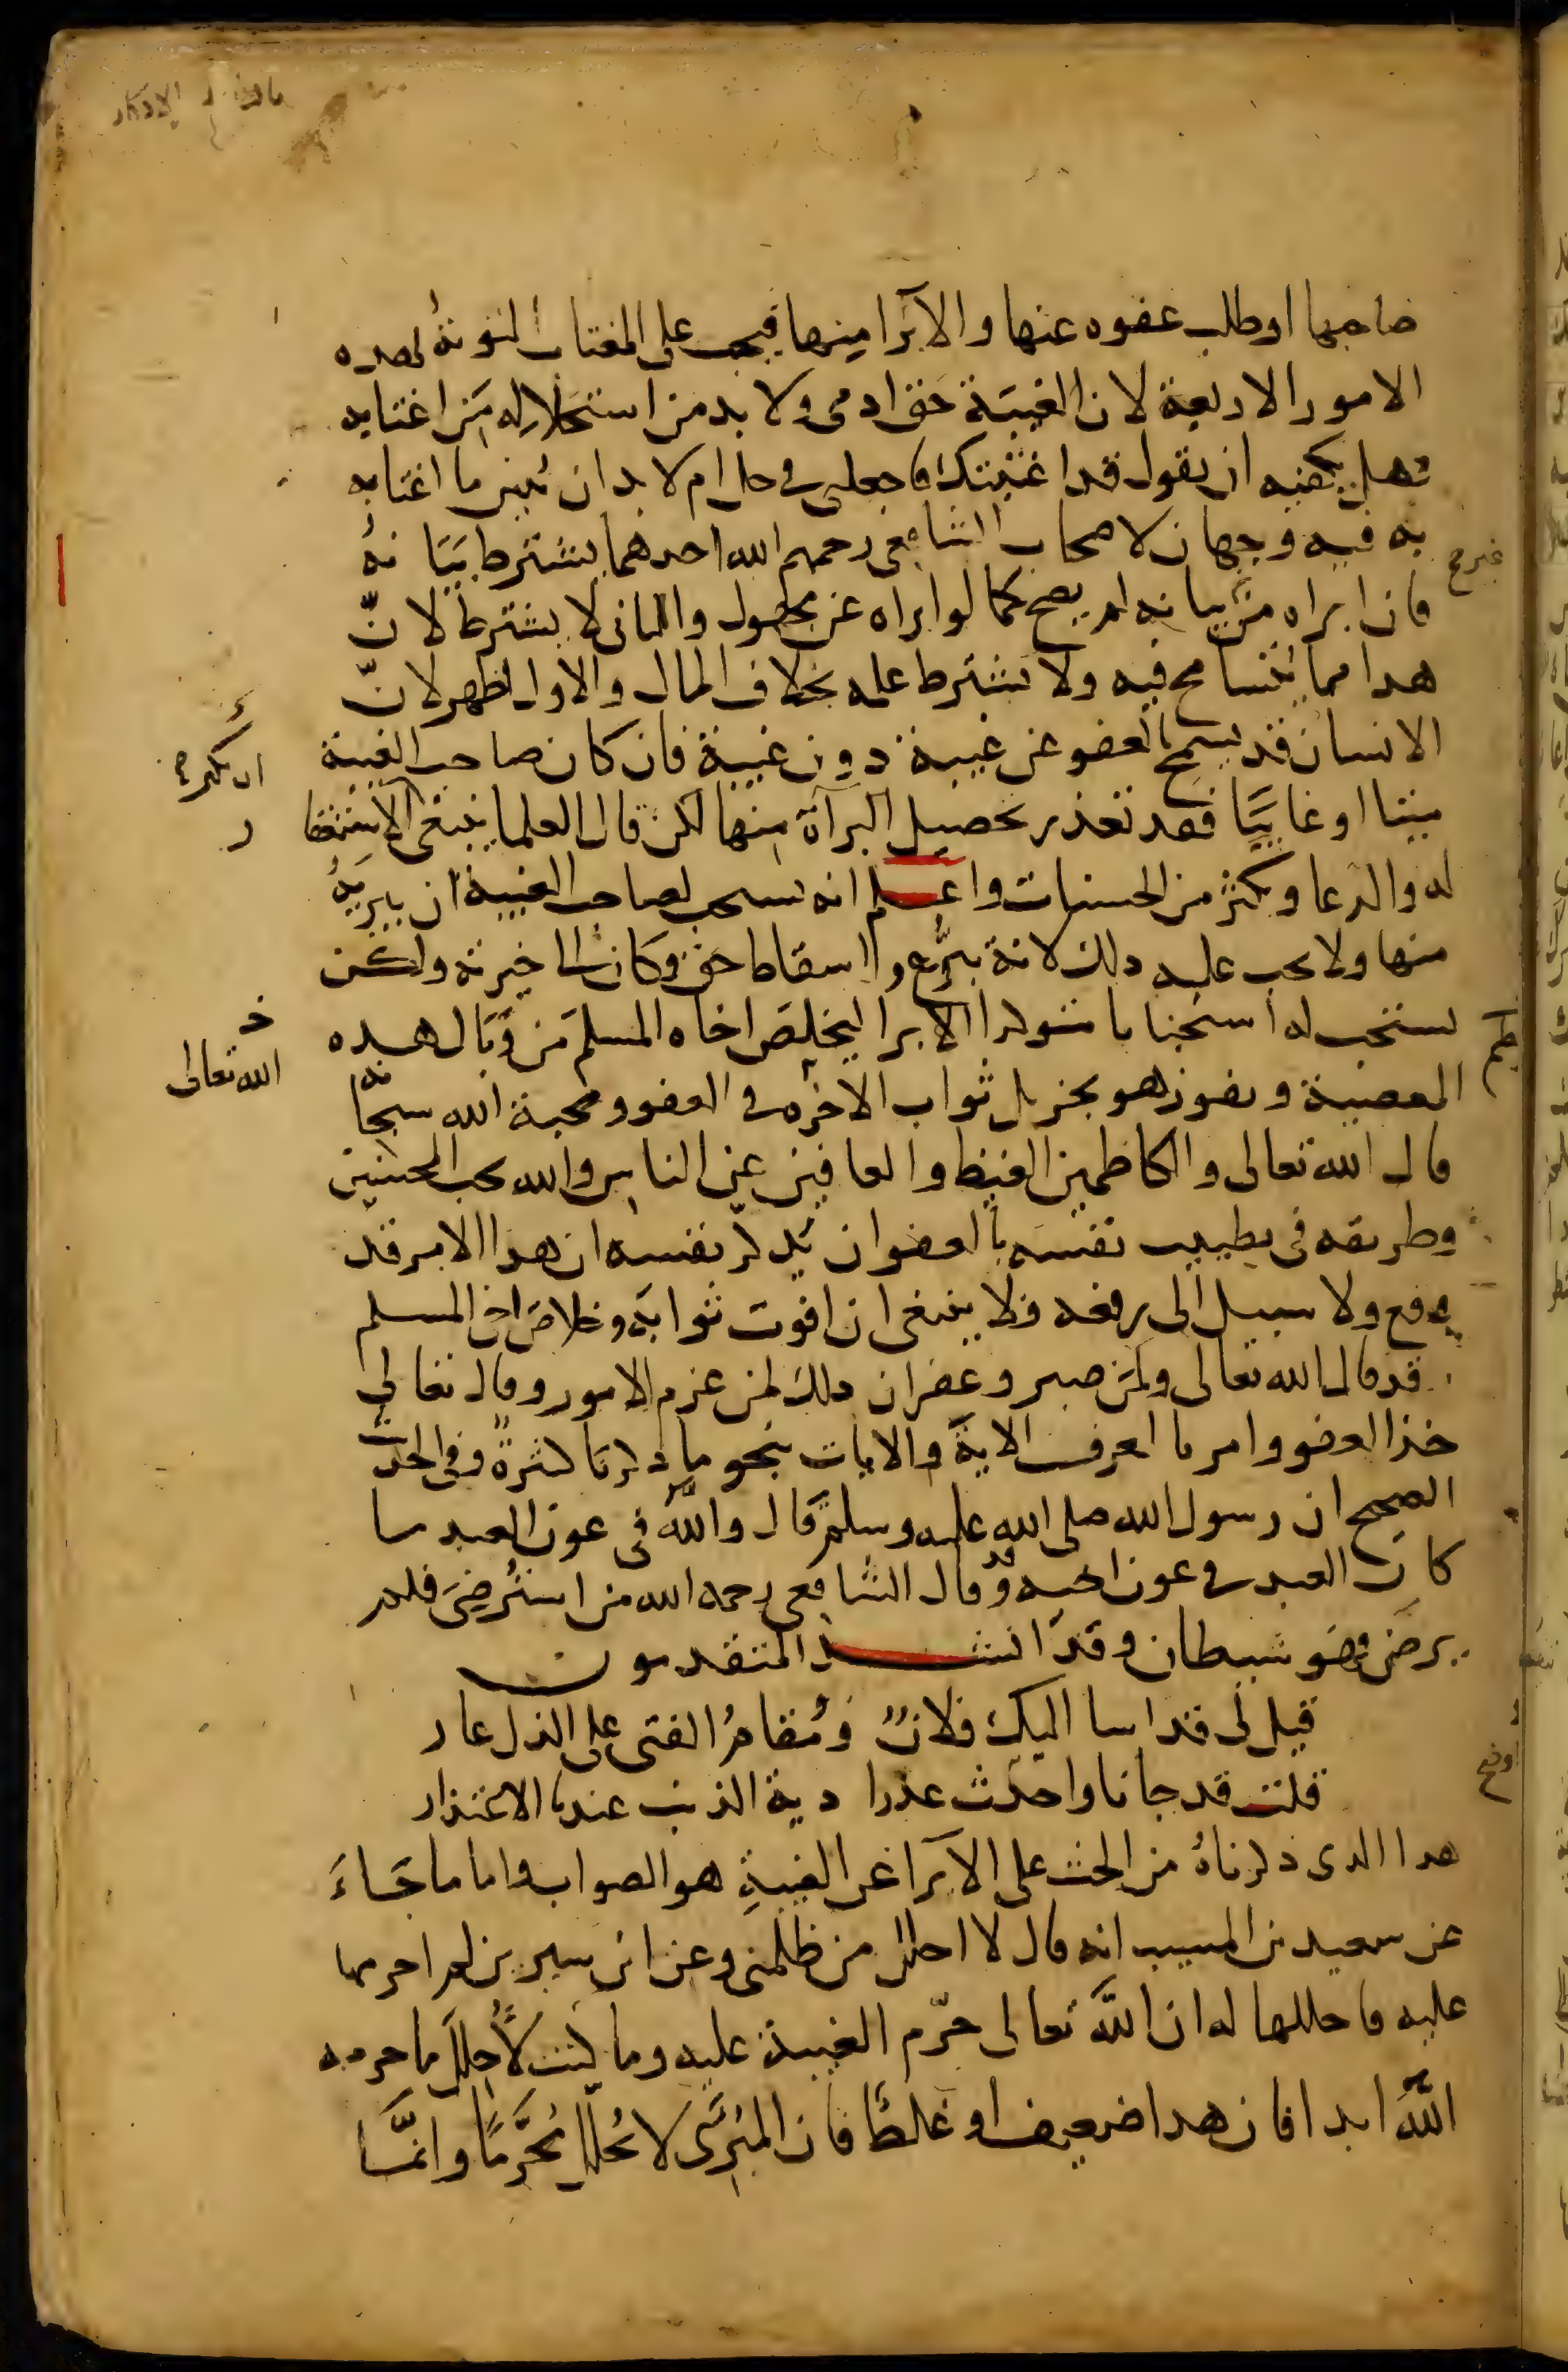 صاحبها او طلب عفوه عنها والابرا منها فيجب على المغتاب التوبة بهذه
الامور الاربعة لان الغيبة حق ادمي ولا بد من استحلاله من اغتابه
وهل يكفيه ان يقول قد اغتبتك فاجعلني في حل ام لا بد ان يبين ما اغتابه
به فيه وجهان لاصحاب الشافعي رحمهم الله احدهما يشترط بيانه
فان ابراه من بيانه لم يصح كما لو ابراه عن مجهول والثاني لا يشترط لانّ
هذا مما يتسامح فيه ولا يشترط علمه بخلاف المال والاول اظهر لانّ
الانسان قد يسمح بالعفو عن غيبة دون غيبة فان كان صاحب الغيبة
ميتا او غايبًا فقد تعذر تحصيل البرآة منها لكن قال العلما ينبغي الاستغفار
له والدعا ويكثر من الحسنات واعلم انه يستحب لصاحب الغيبة ان يبريه
منها ولا يجب عليه ذلك لانه تبرّع واسقاط حق وكان الى خيرته ولكن
يستحب له استحبابا متوكدا الابرا ليخلص اخاه المسلم من وبال هذه
المعصية ويفوز هو بجزيل ثواب الاخره في العفو ومحبة الله سبحانه
الله تعالى
قال الله تعالى والكاظمين الغيظ والعافين عن الناس والله يحب المحسنين
وطريقه في تطييب نفسه بالعفو ان يذكر نفسه ان هذا الامر قد
وقع ولا سبيل الى رفعه فلا ينبغي ان افوت ثوابه وخلاص اخي المسلم
قد قال الله تعالى ولمن صبر وغفر ان ذلك لمن عزم الامور وقال تعالى
خذ العفو وامر بالعرف الاية والايات بنحو ما ذكرنا كثيرة وفي الحديث
الصحيح ان رسول الله صلى الله عليه وسلم قال والله في عون العبد ما
كان العبد في عون اخيه وقد قال الشافعي رحمه الله من استرضي فلم
يرض فهو شيطان وقد انشد المتقدمون
قيل لى قد اسا اليك فلانٌ ومُقامُ الفتى على الذل عار
قلت قد جانا واحدث عذرا دية الذنب عندنا الاعتذار
هذا الذي ذكرناهُ من الحث على الابرا عن الغيبةِ هو الصواب واما ما جاءَ
عن سعيد بن المسيب انه قال لا احلل من ظلمني وعن ابن سيرين لم احرمها
عليه فاحللها له ان اللّه تعالى حرّم الغيبة عليه وما كنت لأحلل ما حرمه
اللّه ابدا فان هذا ضعيف او غلط فان المبرى لا يحلل محرّمًا وانّما